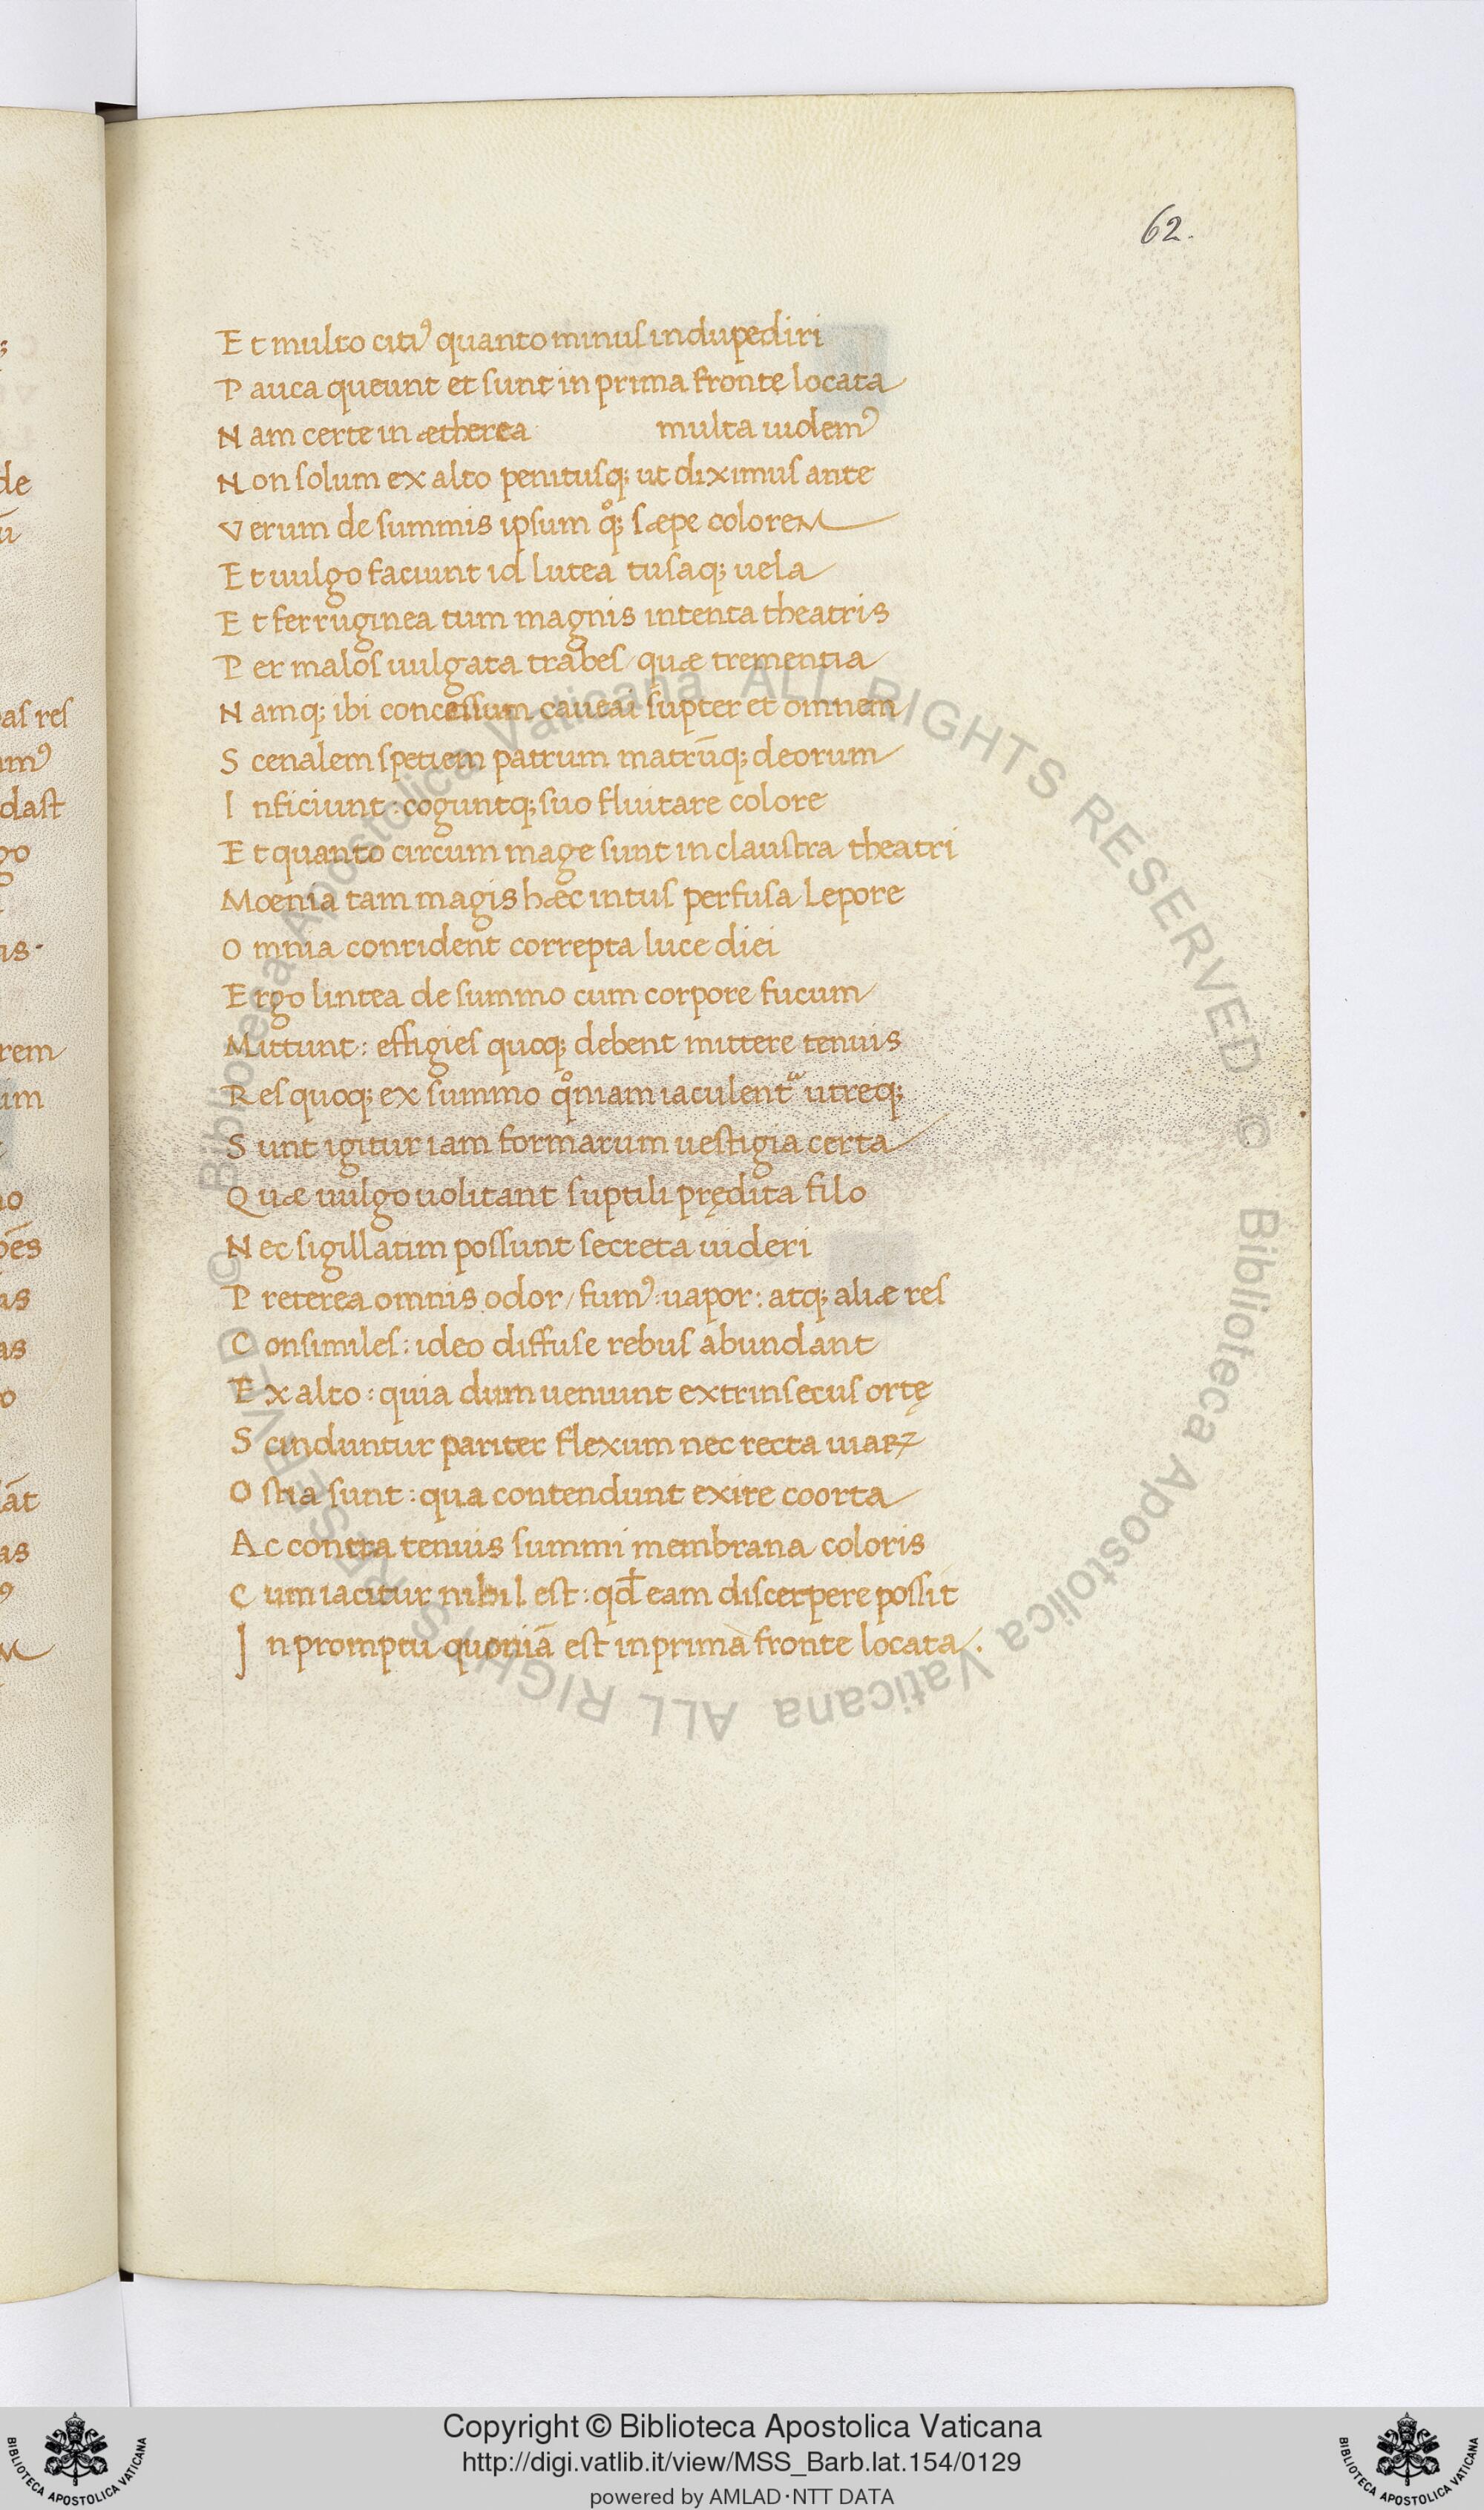 62.
Et multo citiꝰ quanto minus indupediri
Pauca queunt et sunt in prima fronte locata
Nam certe in ætherea multa uidemꝰ
Non solum ex alto penitusq; ut diximus ante
Verum de summis ipsum qͦq; sæpe colorem
Et uulgo faciunt id lutea tusaq; uela
Et ferruginea tum magnis intenta theatris
Per malos uulgata trabes / quæ trementia
Namq; ibi concessum caueai supter et omnem
Scenalem spetiem patrum matrūq; deorum
Inficiunt: coguntq; suo fluitare colore
Et quanto circum mage sunt in claustra theatri
Moenia tam magis hæc intus perfusa lepore
Omnia conrident correpta luce diei
Ergo lintea de summo cum corpore fucum
Mittunt: effigies quoq; debent mittere tenuis
Res quoq; ex summo qͦniam iaculentᵃ utreq;
Sunt igitur iam formarum uestigia certa
Quæ uulgo uolitant suptili prędita filo
Nec sigillatim possunt secreta uideri
Preterea omnis odor / fumꝰ: uapor: atq; aliæ res
Consimiles: ideo diffuse rebus abundant
Ex alto: quia dum ueniunt extrinsecus ortę
Scinduntur pariter flexum nec recta uiaꝝ
Ostia sunt: qua contendunt exire coorta
Ac contra tenuis summi membrana coloris
Cum iacitur nihil est: qđ eam discerpere possit
In promptu quoniā est in prima fronte locata.
de
ū
as res
umꝰ
dast
go
is.
rem
um
no
as
as
o
āt
as
Copyright © Biblioteca Apostolica Vaticana
http://digi.vatlib.it/view/MSS_Barb.lat.154/0129
powered by AMLAD·NTT DATA
BIBLIOTECA APOSTOLICA VATICANA
BIBLIOTECA APOSTOLICA VATICANA
© Biblioteca Apostolica Vaticana ALL RIGHTS RESERVED © Biblioteca Apostolica Vaticana ALL RIGHTS RESERVED